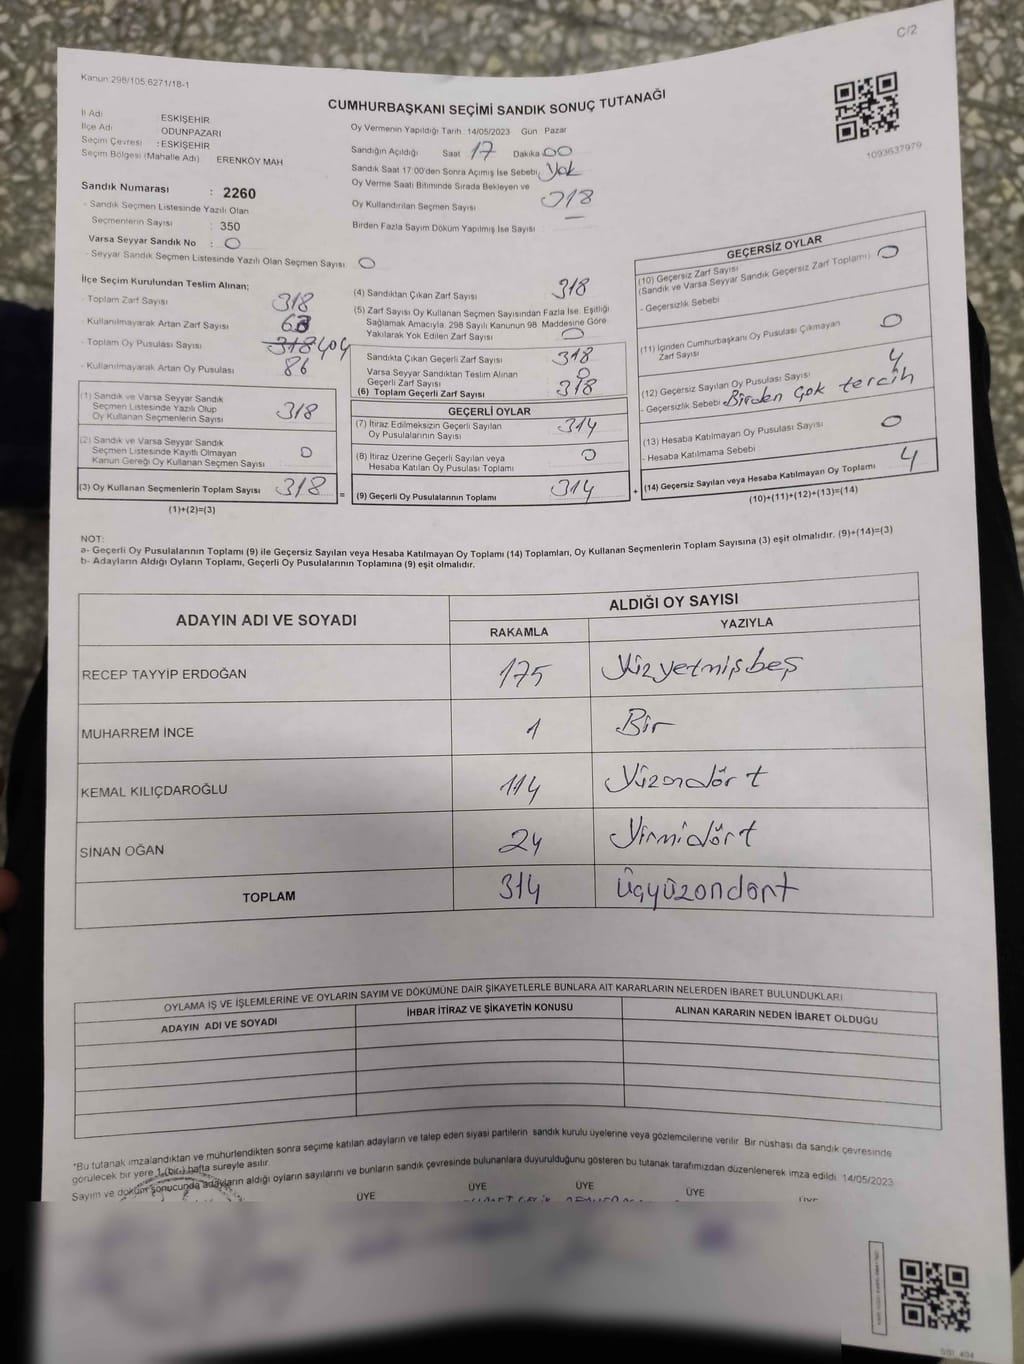 C/2
Kanun:298/105,6271/18-1
CUMHURBAŞKANI SEÇİMİ SANDIK SONUÇ TUTANAĞI
1093637979
İl Adı ESKİŞEHİR
İlçe Adı ODUNPAZARI
Seçim Çevresi : ESKİŞEHİR
Seçim Bölgesi (Mahalle Adı) ERENKÖY MAH
Oy Vermenin Yapıldığı Tarih : 14/05/2023 Gün Pazar
Sandığın Açıldığı Saat 17 Dakika 00
Sandık Saat 17:00'den Sonra Açımış İse Sebebi, Yok
Oy Verme Saati Bitiminde Sırada Bekleyen ve
Oy Kullandırılan Seçmen Sayısı 318
Birden Fazla Sayım Döküm Yapılmış İse Sayısı
Sandık Numarası : 2260
- Sandık Seçmen Listesinde Yazılı Olan
Seçmenlerin Sayısı : 350
Varsa Seyyar Sandık No : 0
- Seyyar Sandık Seçmen Listesinde Yazılı Olan Seçmen Sayısı: 0
İlçe Seçim Kurulundan Teslim Alınan;
- Toplam Zarf Sayısı 318
- Kullanılmayarak Artan Zarf Sayısı
- Toplam Oy Pusulası Sayısı 318 404
- Kullanılmayarak Artan Oy Pusulası 86
(1) Sandık ve Varsa Seyyar Sandık
Seçmen Listesinde Yazılı Olup
Oy Kullanan Seçmenlerin Sayısı 318
(2) Sandık ve Varsa Seyyar Sandık
Seçmen Listesinde Kayıtlı Olmayan
Kanun Gereği Oy Kullanan Seçmen Sayısı 0
(3) Oy Kullanan Seçmenlerin Toplam Sayısı 318 =
(1)+(2)=(3)
(4) Sandıktan Çıkan Zarf Sayısı 318
(5) Zarf Sayısı Oy Kullanan Seçmen Sayısından Fazla İse, Eşitliği
Sağlamak Amacıyla, 298 Sayılı Kanunun 98. Maddesine Göre
Yakılarak Yok Edilen Zarf Sayısı 0
Sandıkta Çıkan Geçerli Zarf Sayısı 318
Varsa Seyyar Sandıktan Teslim Alınan
Geçerli Zarf Sayısı 0
(6) Toplam Geçerli Zarf Sayısı 318
GEÇERLİ OYLAR
(7) İtiraz Edilmeksizin Geçerli Sayılan
Oy Pusulalarının Sayısı 314
(8) İtiraz Üzerine Geçerli Sayılan veya
Hesaba Katılan Oy Pusulası Toplamı 0
(9) Geçerli Oy Pusulalarının Toplamı 314 +
GEÇERSİZ OYLAR
(10) Geçersiz Zarf Sayısı
(Sandık ve Varsa Seyyar Sandık Geçersiz Zarf Toplamı) 0
- Geçersizlik Sebebi
(11) İçinden Cumhurbaşkanı Oy Pusulası Çıkmayan
Zarf Sayısı 0
(12) Geçersiz Sayılan Oy Pusulası Sayısı 4
- Geçersizlik Sebebi Birden çok tercih
(13) Hesaba Katılmayan Oy Pusulası Sayısı 0
- Hesaba Katılmama Sebebi
(14) Geçersiz Sayılan veya Hesaba Katılmayan Oy Toplamı 4
(10)+(11)+(12)+(13)=(14)
NOT:
a- Geçerli Oy Pusulalarının Toplamı (9) ile Geçersiz Sayılan veya Hesaba Katılmayan Oy Toplamı (14) Toplamları, Oy Kullanan Seçmenlerin Toplam Sayısına (3) eşit olmalıdır. (9)+(14)=(3)
b- Adayların Aldığı Oyların Toplamı, Geçerli Oy Pusulalarının Toplamına (9) eşit olmalıdır.
ADAYIN ADI VE SOYADI ALDIĞI OY SAYISI
RAKAMLA YAZIYLA
RECEP TAYYİP ERDOĞAN 175 Yüzyetmişbeş
MUHARREM İNCE 1 Bir
KEMAL KILIÇDAROĞLU 114 Yüzondört
SİNAN OĞAN 24 Yirmidört
TOPLAM 314 Üçyüzondört
OYLAMA İŞ VE İŞLEMLERİNE VE OYLARIN SAYIM VE DÖKÜMÜNE DAİR ŞİKAYETLERLE BUNLARA AİT KARARLARIN NELERDEN İBARET BULUNDUKLARI
ADAYIN ADI VE SOYADI İHBAR İTİRAZ VE ŞİKAYETİN KONUSU ALINAN KARARIN NEDEN İBARET OLDUĞU
*Bu tutanak imzalandıktan ve mühürlendikten sonra seçime katılan adayların ve talep eden siyasi partilerin sandık kurulu üyelerine veya gözlemcilerine verilir. Bir nüshası da sandık çevresinde
görülecek bir yere 1 (bir) hafta süreyle asılır.
Sayım ve döküm sonucunda adayların aldığı oyların sayılarını ve bunların sandık çevresinde bulunanlara duyurulduğunu gösteren bu tutanak tarafımızdan düzenlenerek imza edildi. 14/05/2023
ÜYE ÜYE ÜYE ÜYE